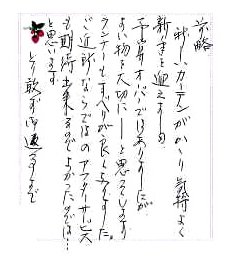 前略
新しいカーテンがかかり気持よく
新年を迎えます。
予算オーバーではありましたが
よい物を大切に!と思っています
ランナーもすべりが良くなりました。
ご近所ならではのアフターサービス
も期待出来るのでよかったのでは…
と思います。
とり敢ずお